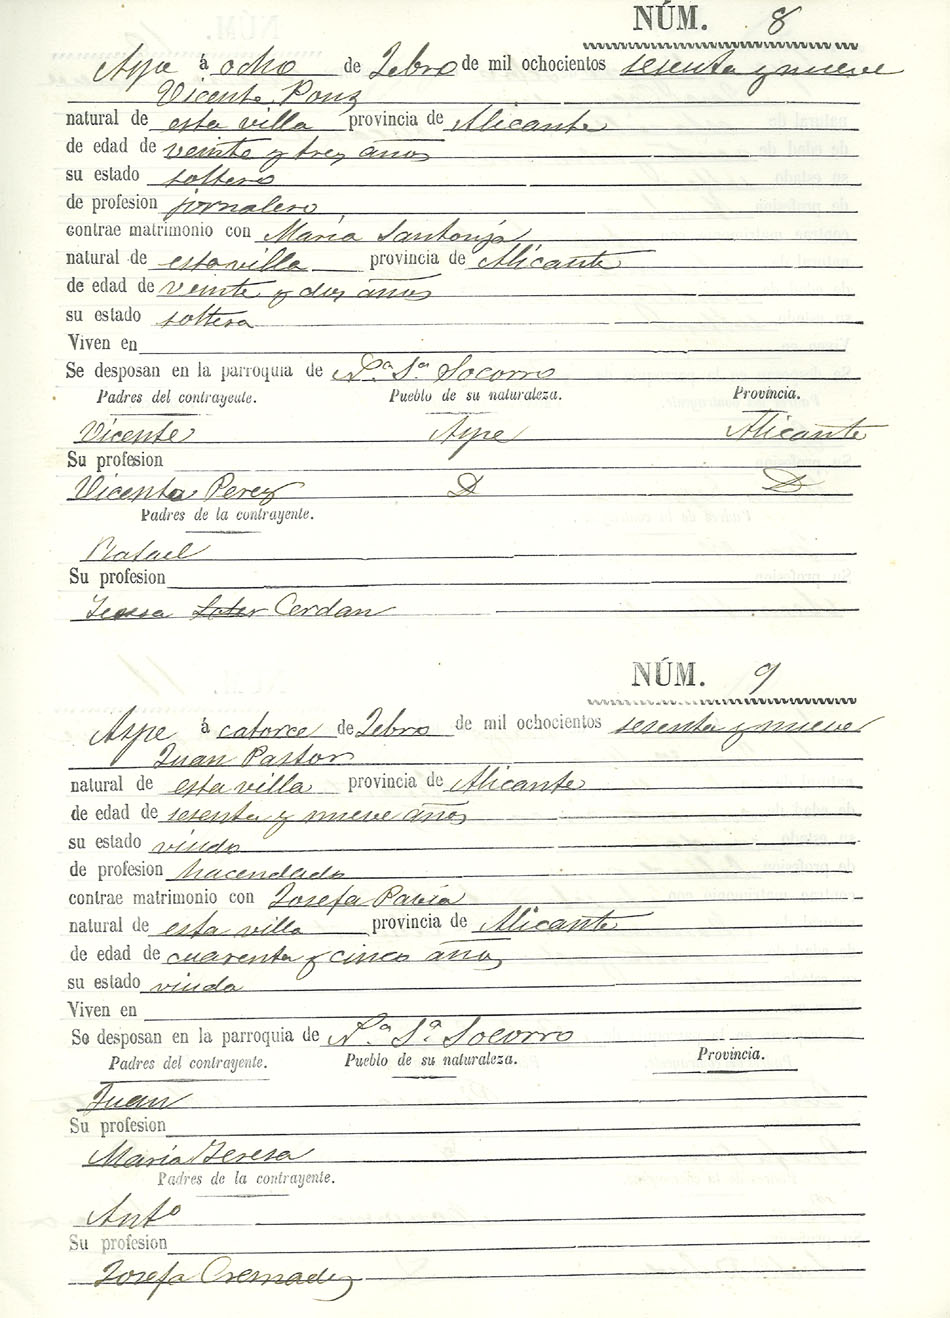 NÚM. 8
Aspe á ocho de Febro de mil ochocientos sesenta y nueve
Vicente Pons
natural de esta villa provincia de Alicante
de edad de veinte y tres años
su estado soltero
de profesion jornalero
contrae matrimonio con María Santonja
natural de esta villa provincia de Alicante
de edad de veinte y dos años
su estado soltera
Viven en
Se desposan en la parroquia de Nª Sª Socorro
Padres del contrayente. Pueblo de su naturaleza. Provincia.
Vicente Aspe Alicante
Su profesion
Vicenta Perez D D
Padres de la contrayente.
Rafael
Su profesion
Teresa Cerdan
NÚM. 9
Aspe á catorce de Febro de mil ochocientos sesenta y nueve
Juan Pastor
natural de esta villa provincia de Alicante
de edad de sesenta y nueve años
su estado viudo
de profesion hacendado
contrae matrimonio con Josefa Pavía
natural de esta villa provincia de Alicante
de edad de cuarenta y cinco años
su estado viuda
Viven en
Se desposan en la parroquia de Nª Sª Socorro
Padres del contrayente. Pueblo de su naturaleza. Provincia.
Juan
Su profesion
María Teresa
Padres de la contrayente.
Antº
Su profesion
Josefa Cremades